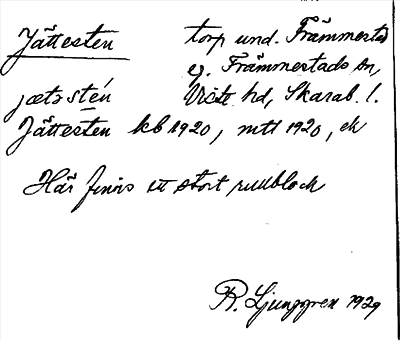 Jättesten torp und. Främmestad
ej. Främmestads sn,
jætsstén Viste hd, Skarab. l.
Jättesten kb 1920, mtl 1920, ek
Här finns ett stort rullblock
R. Ljunggren 1929